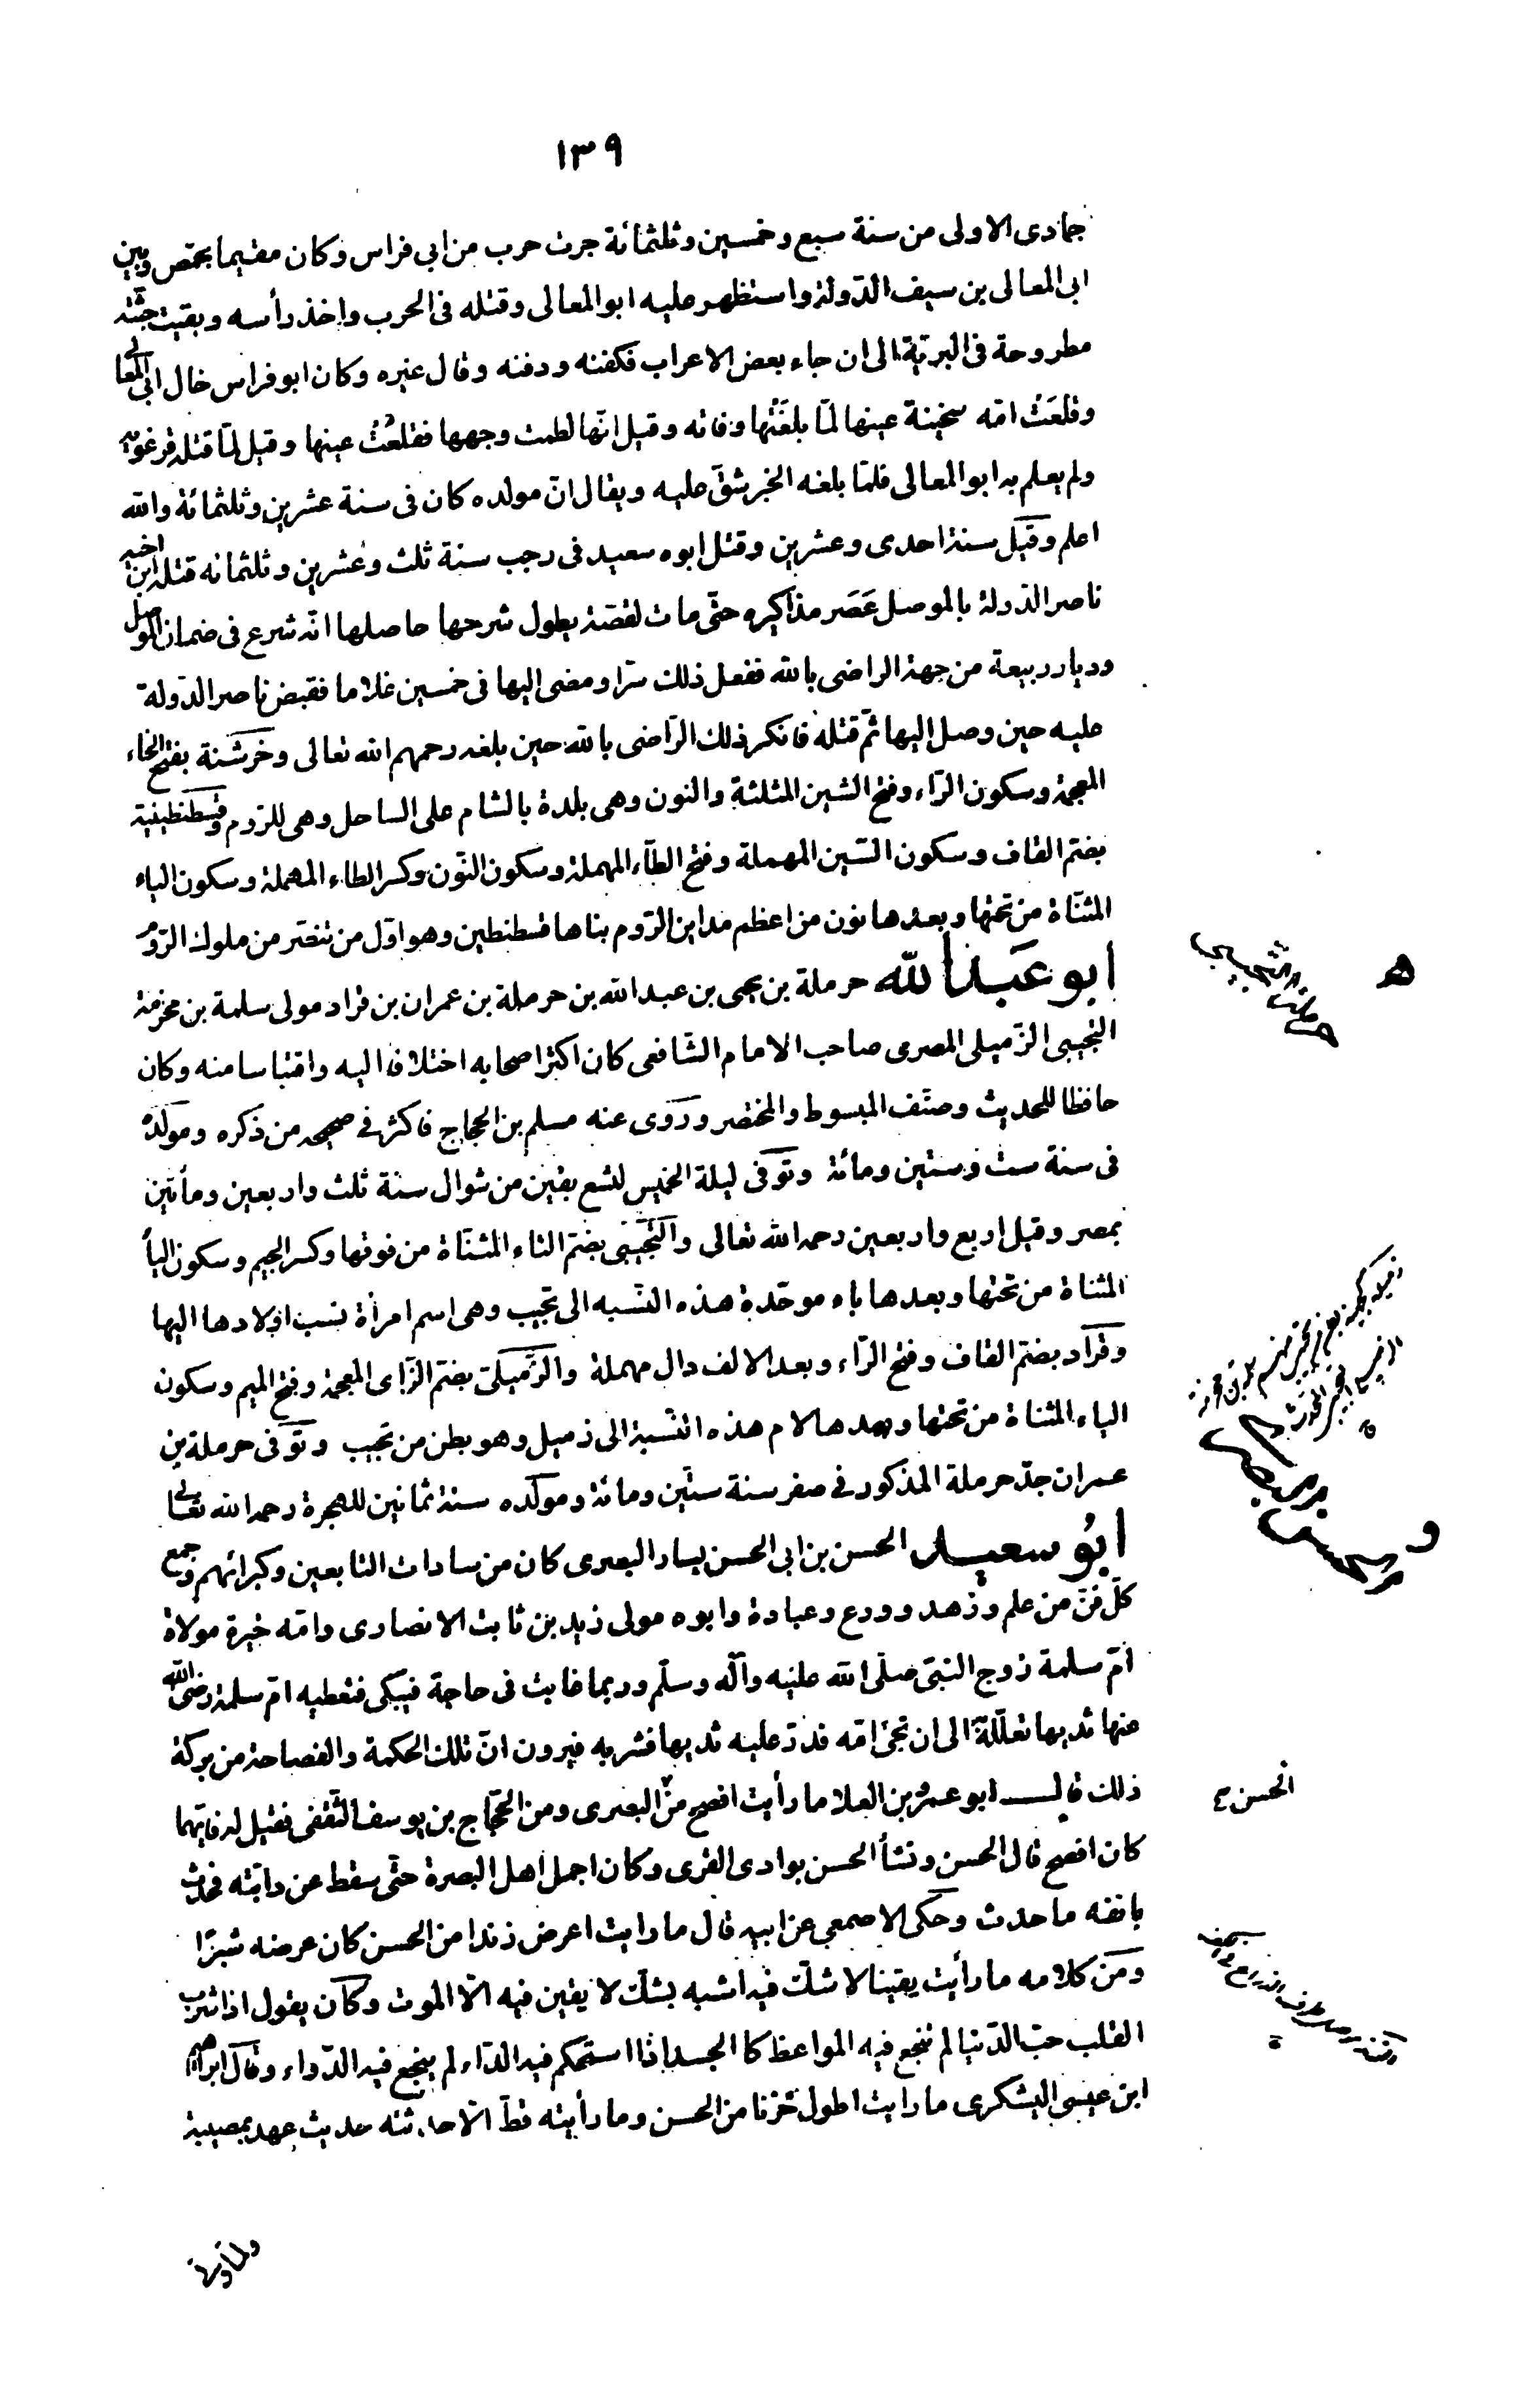 ١٣٩
جمادى الاولى من سنة سبع وخمسين وثلثمائة جرت حرب من ابى فراس وكان مقيما بحمص وبين
ابى المعالى بن سيف الدّولة واستظهر عليه ابو المعالى وقتله فى الحرب واخذ رأسه وبقيت جثّته
مطروحة فى البريّة الى ان جاء بعض الاعراب فكفنه ودفنه وقال غيره وكان ابو فراس خال ابى المعالى
وقلعَتْ امّه سخينة عينها لمّا بلغَتْها وفاته وقيل انّها لطمت وجهها فقلعَتْ عينها وقيل لمّا قتله قرغويه
ولم يعلم به ابو المعالى فلمّا بلغه الخبر شقّ عليه ويقال انّ مولده كان فى سنة عشرين وثلثمائة والله
اعلم وقيل سنة احدى وعشرين وقتل ابوه سعيد فى رجب سنة ثلث وعشرين وثلثمائه قتله ابن اخيه
ناصر الدّولة بالموصل عَصَر مذاكيره حتّى مات لقصّة يطول شرحها حاصلها انّه شرع فى ضمان الموصل
وديار ربيعة من جهة الراضى بالله ففعل ذلك سرّا ومضى اليها فى خمسين غلاما فقبض ناصر الدّولة
عليه حين وصل اليها ثمّ قتله فانكر ذلك الرّاضى بالله حين بلغه رحمهم الله تعالى وخرشنة بفتح الخاء
المعجمة وسكون الرّاء وفتح الشين المثلثة والنون وهى بلدة بالشام على الساحل وهى للرّوم وقسطنطينية
بضمّ القاف وسكون السّين المهملة وفتح الطّاء المهملة وسكون النّون وكسر الطاء المهملة وسكون الياء
المثنّاة من تحتها وبعدها نون من اعظم مداين الرّوم بناها قسطنطين وهو اوّل من تنصّر من ملوك الرّوم
أبو عَبد ألله حرملة بن يحيى بن عبد الله بن حرملة بن عمران بن قراد مولى سلمة بن مخرمة
التجيبى الزّميلى المصرى صاحب الامام الشّافعى كان اكثر اصحابه اختلافا اليه واقتباسا منه وكان
حافظا للحديث وصنّف المبسوط والمختصر وروى عنه مسلم بن الحجاج فاكثر فى صحيحه من ذكره ومولده
فى سنة ست وستين ومائة وتوفى ليلة الخميس لتسع بقين من شوال سنة ثلث واربعين ومأتين
بمصر وقيل اربع واربعين رحمه الله تعالى والتّجيبى بضمّ التاء المثنّاة من فوقها وكسر الجيم وسكون اليأ
المثناة من تحتها وبعدها باء موحّدة هذه النّسبه الى تجيب وهى اسم امرأة نسب اولادها اليها
وقراد بضمّ القاف وفتح الرّاء وبعد الالف دال مهملة والزّميلىّ بضمّ الزّاى المعجمة وفتح الميم وسكون
الياء المثناة من تحتها وبعدها لام هذه النّسبة الى زميل وهو بطن من تجيب وتوفى حرملة بن
عمران جدّ حرملة المذكور فى صفر سنة ستّين ومائة ومولده سنة ثمانين للهجرة رحمه الله تعالى
ابُو سعيد الحسن بن ابى الحسن يسار البصرى كان من سادات التابعين وكبرائهم وجمع
كلّ فنّ من علم وزهد وورع وعبادة وابوه مولى زيد بن ثابت الانصارى وامّه خيرة مولاة
امّ سلمة زوج النبىّ صلّى الله عليه وآله وسلّم وربما غابت فى حاجة فيبكى فتعطيه امّ سلمة رضى الله
عنها ثديها تعلّلةً الى ان تجئ امّه فدرّ عليه ثديها فشربه فيرون انّ تلك الحكمة والفصاحة من بركة
ذلك قال ابو عمرو بن العلا ما رأيت افصح من البصرى ومن الحجّاج بن يوسف الثّقفى فقيل له فايّهما
كان افصح قال الحسن ونشأ الحسن بوادى القرى وكان اجمل اهل البصرة حتّى سقط عن دابّته فحدث
بانفه ما حدث وحكى الاصمعى عن ابيه قال ما رايت اعرض زندا من الحسن كان عرضه شبرًا
ومن كلامه ما رأيت يقينا لا شكّ فيه اشبه بشكّ لا يقين فيه الّا الموت وكان يقول اذا شرب
القلب حبّ الدّنيا لم تنجع فيه المواعظ كا الجسد اذا استحكم فيه الدّاء لم ينجع فيه الدّواء وقال ابراهيم
ابن عيسى اليشكرى ما رايت اطول حزنا من الحسن وما رأيته قطّ الّا حادثته حديث عهد بمصيبة
ه
حرملة التجيبى
و
الحسن البصرى
الحسن